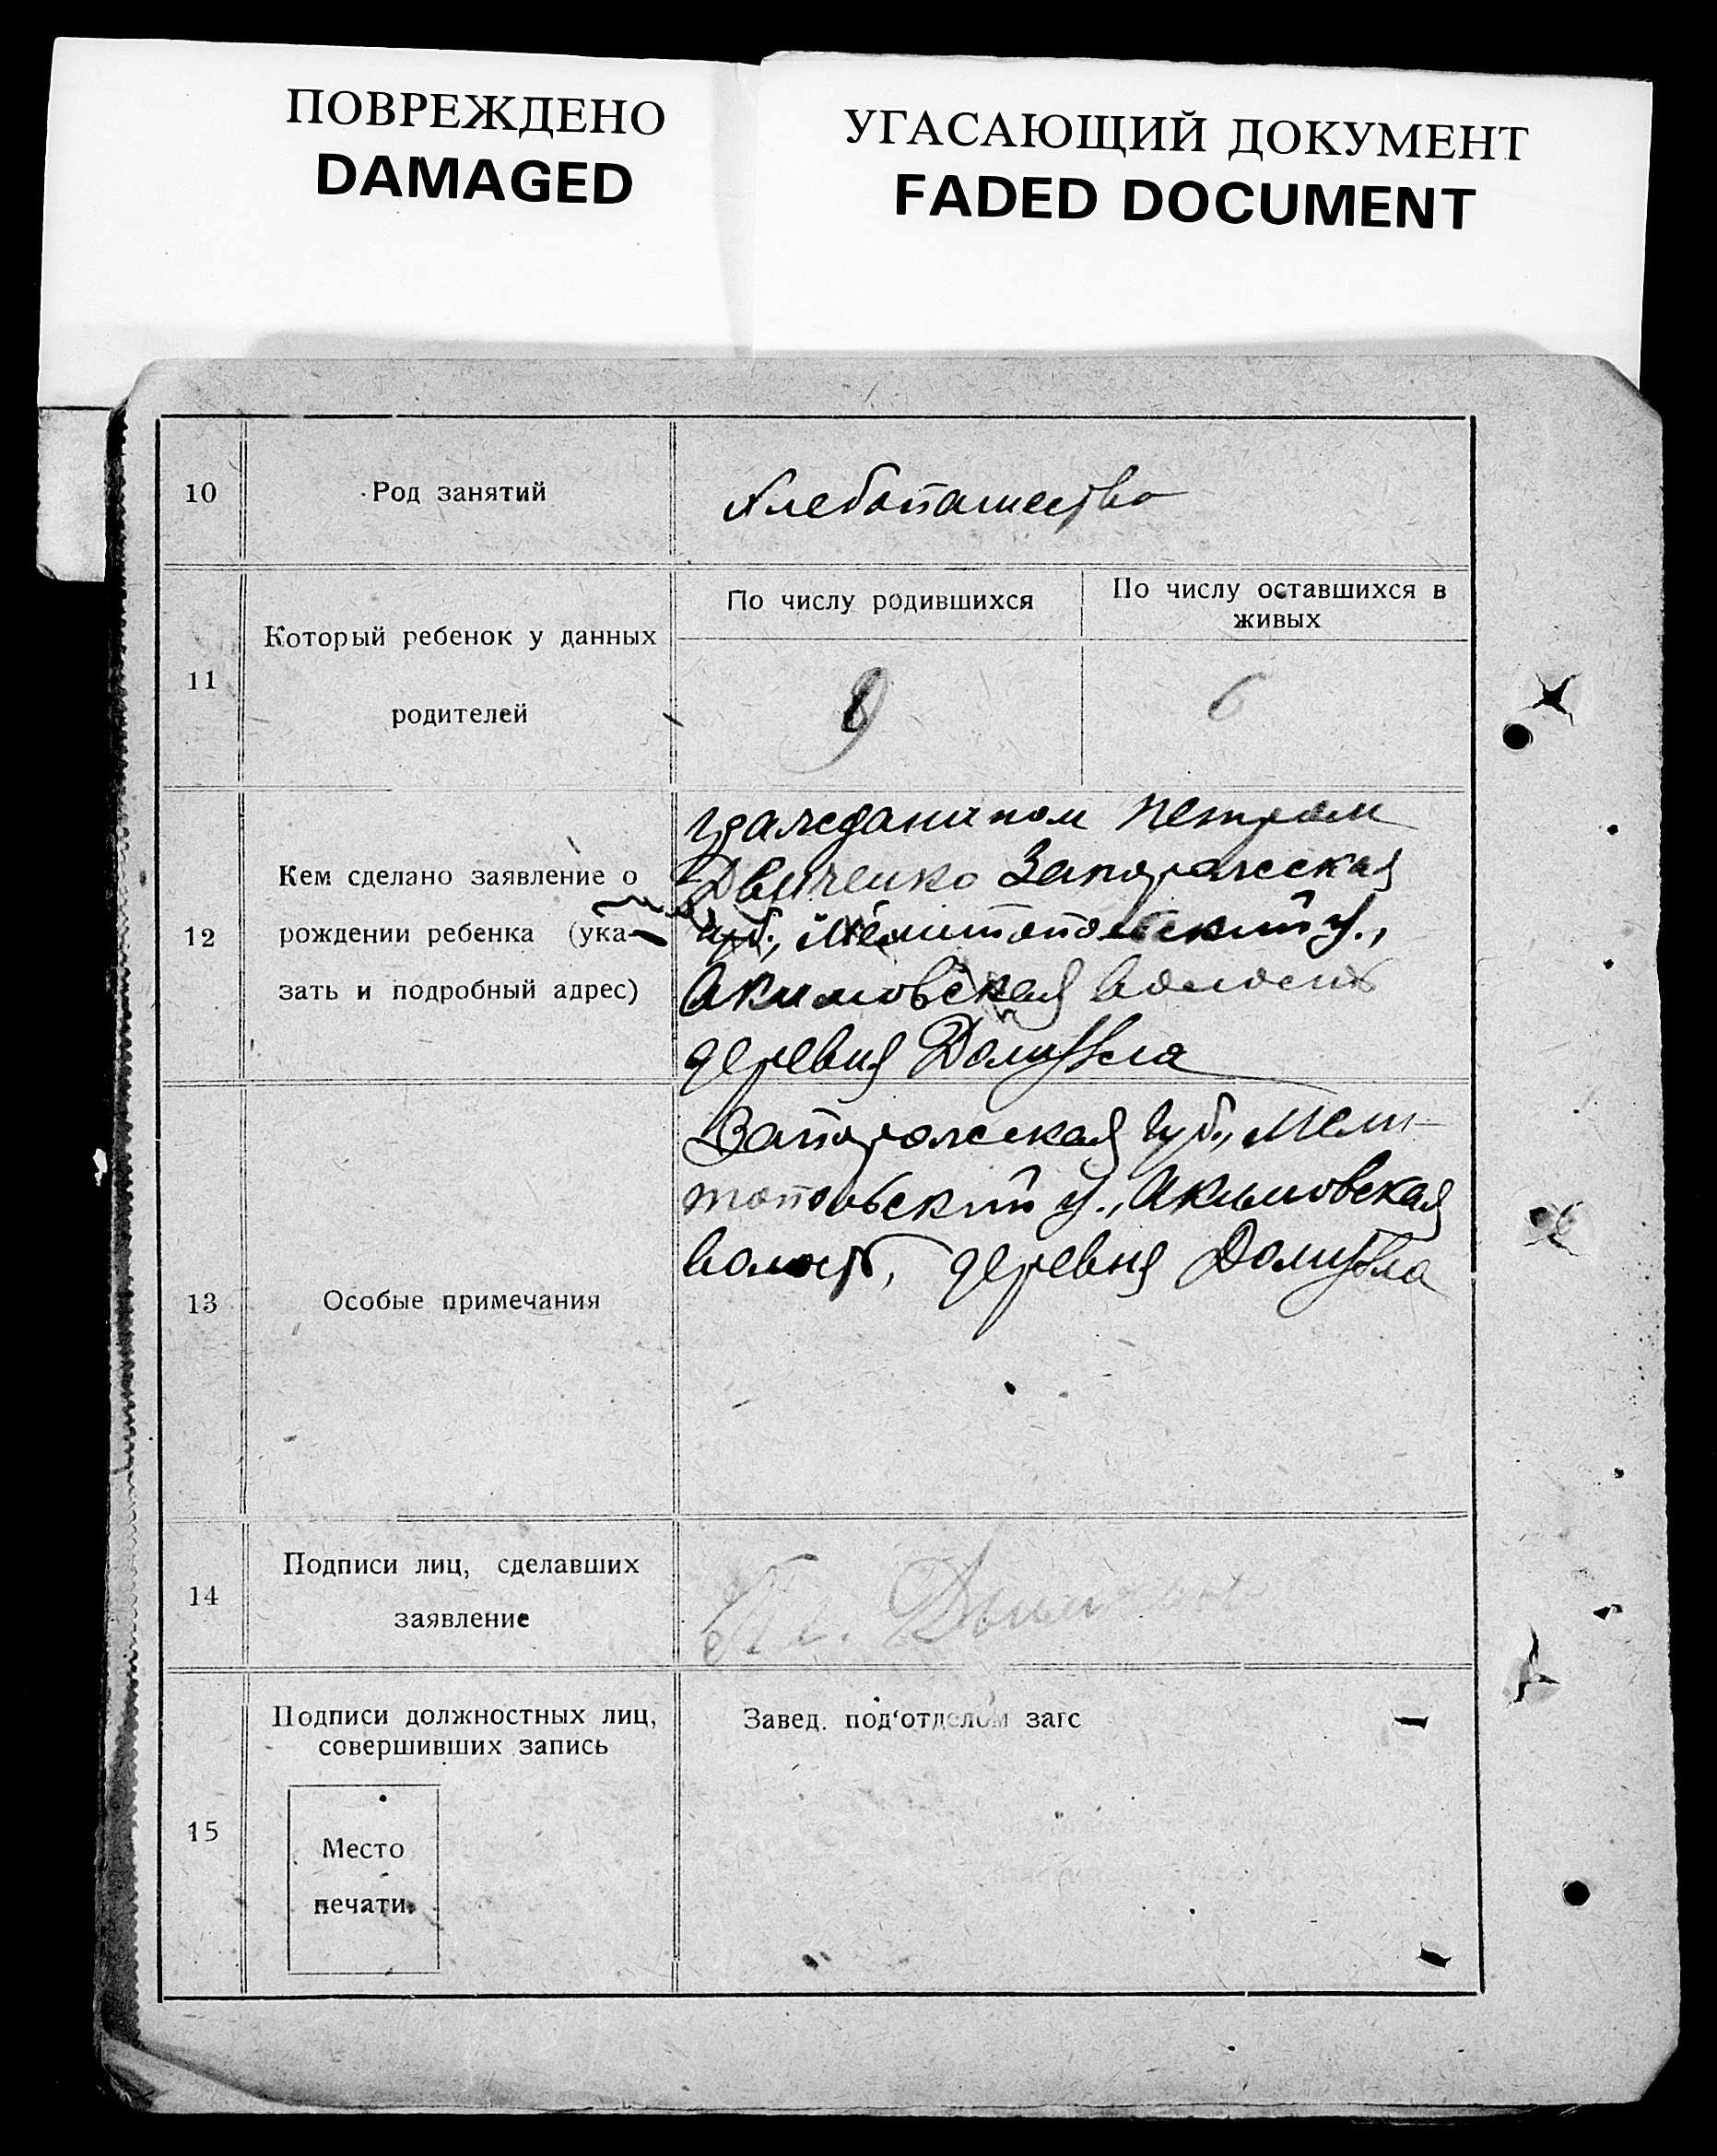 ПОВРЕЖДЕНО
DAMAGED
УГАСАЮЩИЙ ДОКУМЕНТ
FADED DOCUMENT
10
Род занятий
Хлебопашество
11
Который ребенок у данных
родителей
По числу родившихся
По числу оставшихся в
живых
9
6
12
Кем сделано заявление о
рождении ребенка (ука-
зать и подробный адрес)
гражданином Петром
Запорожская
губ., Мелитопольский у.,
Акимовская волость
деревня
13
Особые примечания
Запорожская губ., Мели-
топольский у., Акимовская
волость, деревня
14
Подписи лиц, сделавших
заявление
15
Подписи должностных лиц,
совершивших запись
Место
печати.
Завед. под'отделом загс